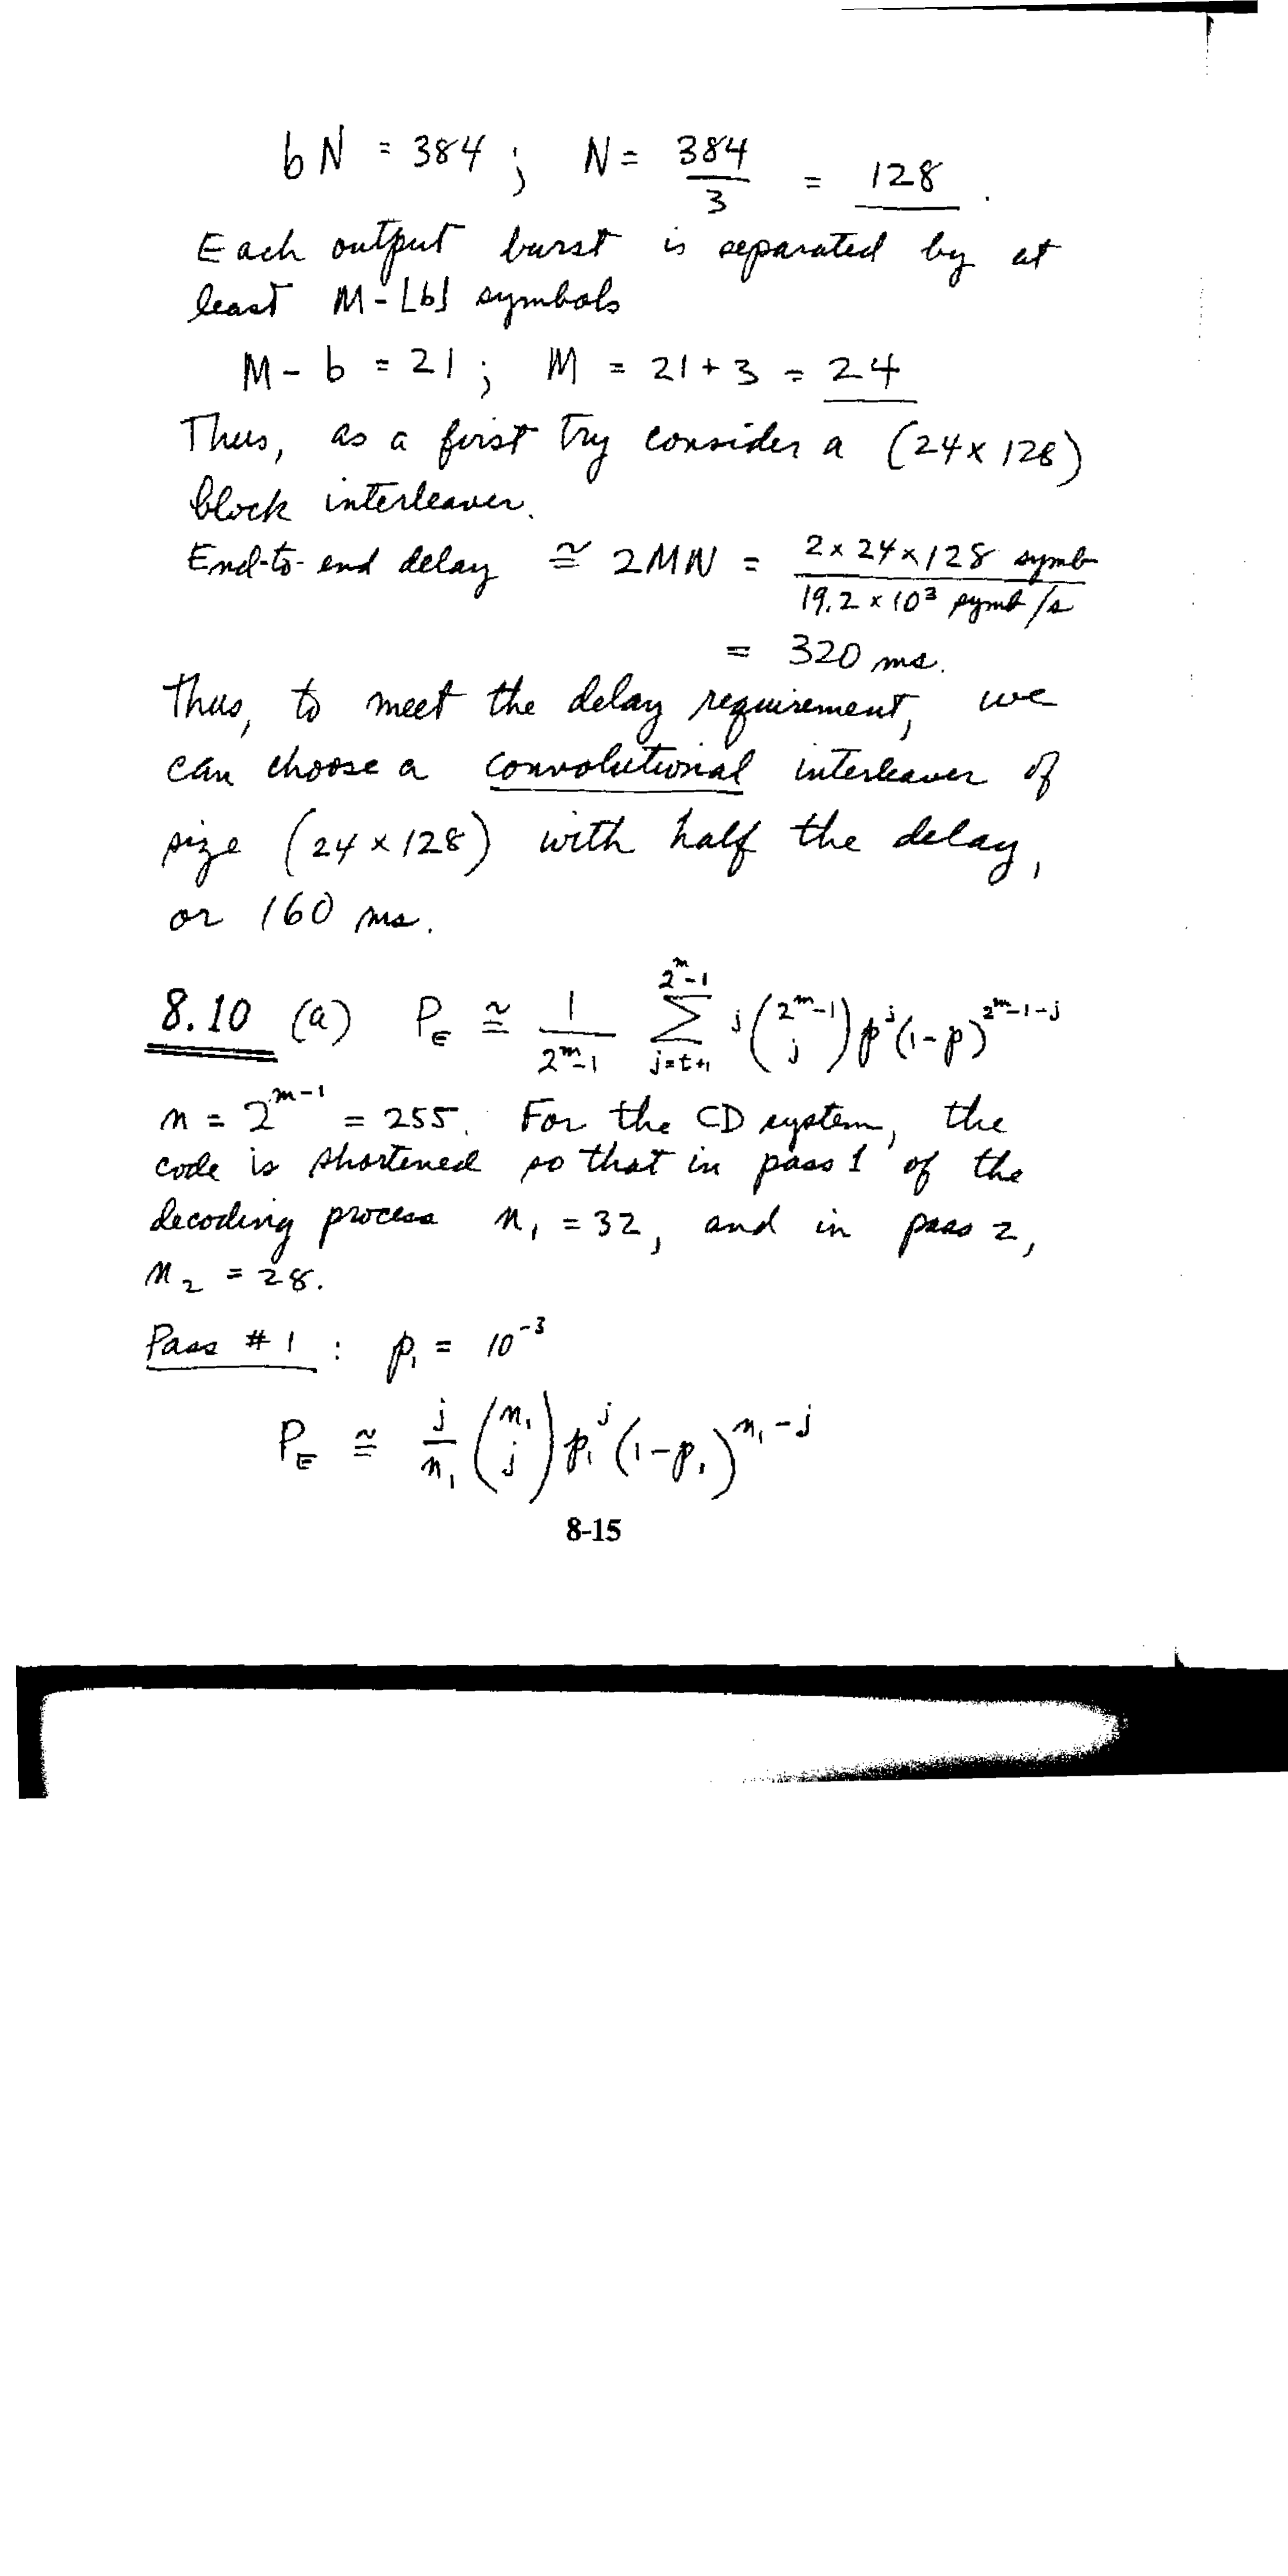 bN = 384 ; N = 384/3 = 128 .
Each output burst is separated by at
least M-⌊b⌋ symbols
M - b = 21 ; M = 21 + 3 = 24
Thus, as a first try consider a (24 x 128)
block interleaver.
End-to-end delay ≅ 2MN = 2 x 24 x 128 symb / 19.2 x 10³ symb/s
= 320 ms.
Thus, to meet the delay requirement, we
can choose a convolutional interleaver of
size (24 x 128) with half the delay,
or 160 ms.
8.10 (a) P_E ≅ 1/(2^m-1) Σ_{j=t+1}^{2^m-1} j (2^m-1 j) p^j (1-p)^{2^m-1-j}
n = 2^{m-1} = 255. For the CD system, the
code is shortened so that in pass 1 of the
decoding process n₁ = 32, and in pass 2,
n₂ = 28.
Pass # 1 : p₁ = 10⁻³
P_E ≅ j/n₁ (n₁ j) p₁^j (1-p₁)^{n₁-j}
8-15